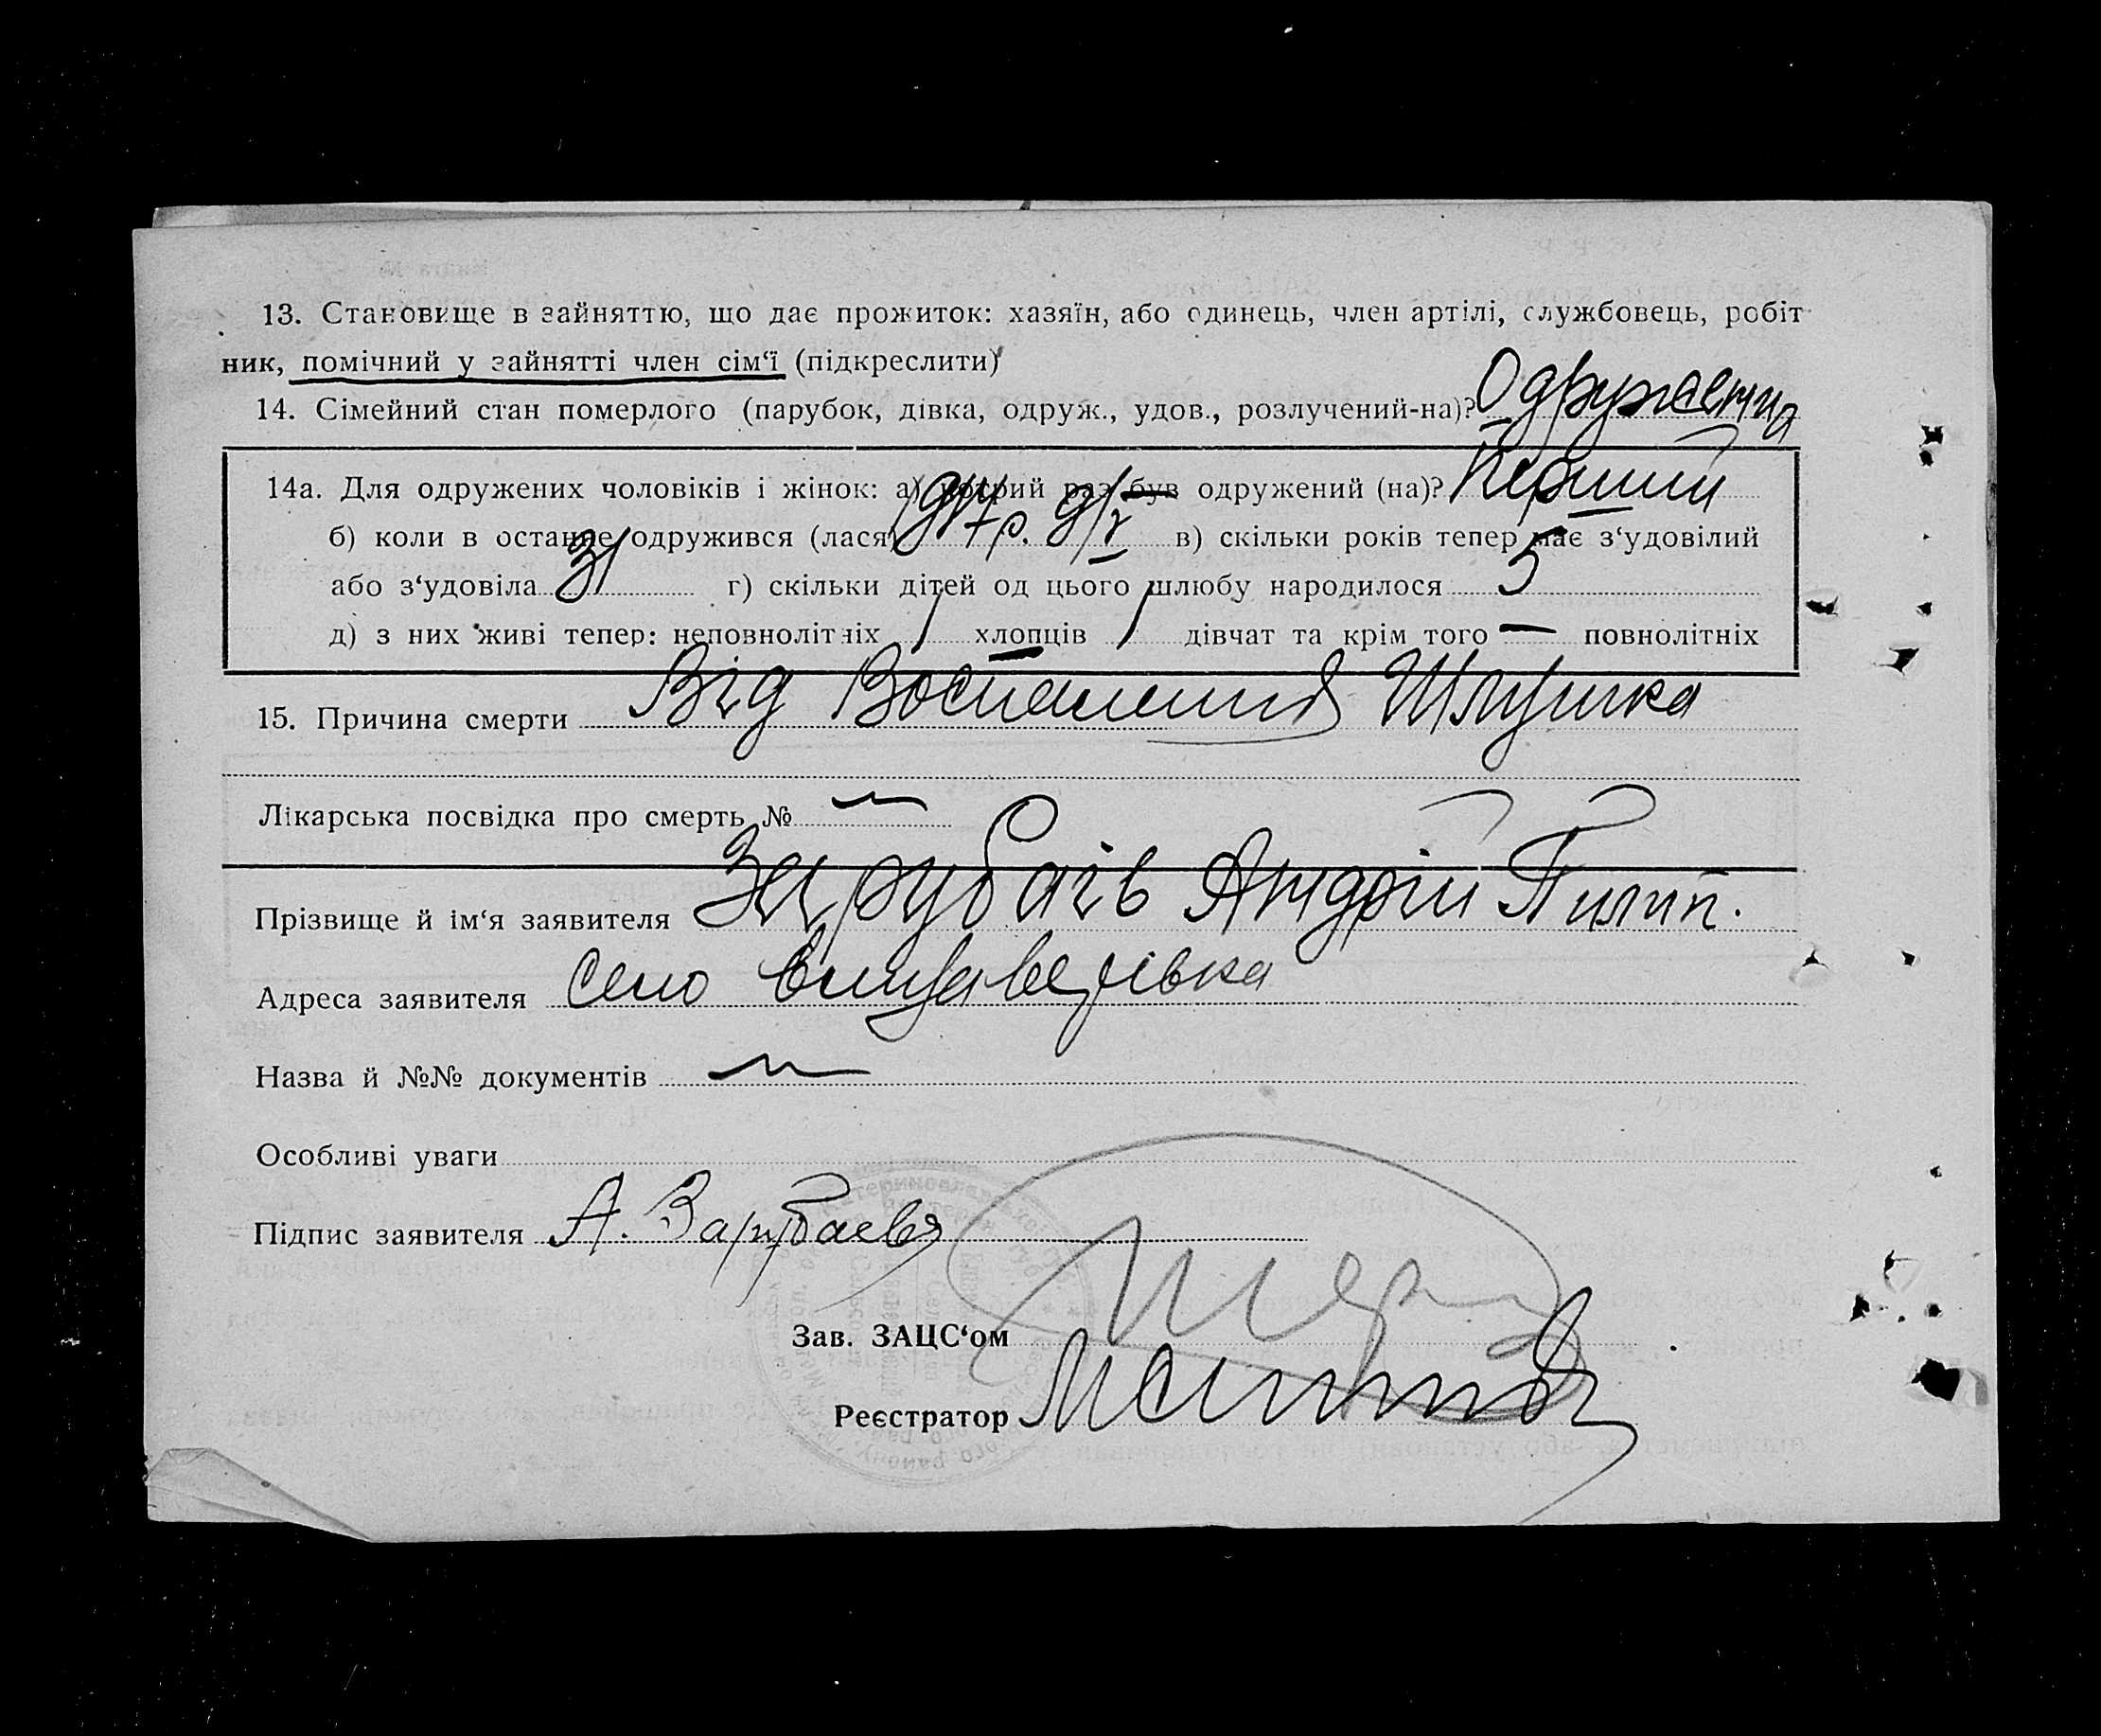 13. Становище в зайняттю, що дає прожиток: хазяїн, або одинець, член артілі, службовець, робіт
ник, помічний у зайнятті член сім‘ї (підкреслити)
14. Сімейний стан померлого (парубок, дівка, одруж., удов., розлучений-на)? Одружена
14а. Для одружених чоловіків і жінок: а) котрий раз був одружений (на)? Перший
б) коли в останнє одружився (лася) в) скільки років тепер має з‘удовілий
або з‘удовіла 31 г) скільки дітей од цього шлюбу народилося 5
д) з них живі тепер: неповнолітніх 1 хлопців 1 дівчат та крім того — повнолітніх
15. Причина смерти Від Воспаления Шлунка
Лікарська посвідка про смерть №
Прізвище й ім‘я заявителя Зарубаєв Андрій Пилип.
Адреса заявителя Село Єлизаветівка
Назва й №№ документів
Особливі уваги
Підпис заявителя А. Зарубаев
Зав. ЗАЦС‘ом
Реєстратор